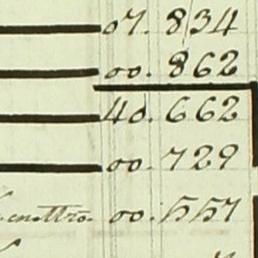 07. 834
00. 862
40. 662
00. 729
00. 557